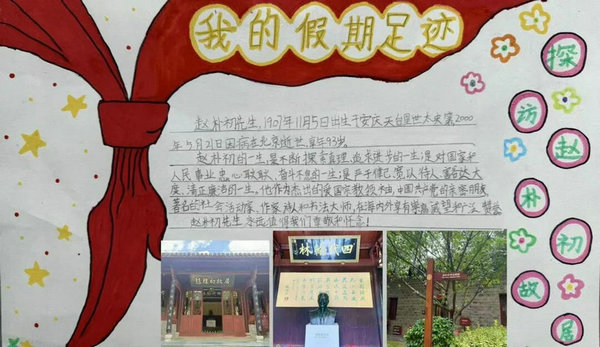 我的假期足迹
探访赵朴初故居
赵朴初先生,1907年11月5日出生于安庆天台里世太史第,2000
年5月21日因病在北京逝世,享年93岁。
赵朴初的一生,是不断探索真理,追求进步的一生;是对国家和
人民事业忠心耿耿、奋斗不息的一生;是严于律己,宽以待人,豁达大
度、清正廉洁的一生。他作为杰出的爱国宗教领袖,中国共产党的亲密朋友,
著名的社会活动家、作家、诗人和书法大师,在海内外享有崇高威望和广泛赞誉
赵朴初先生永远值得我们尊敬和怀念!
居故初朴赵
林翰顾四